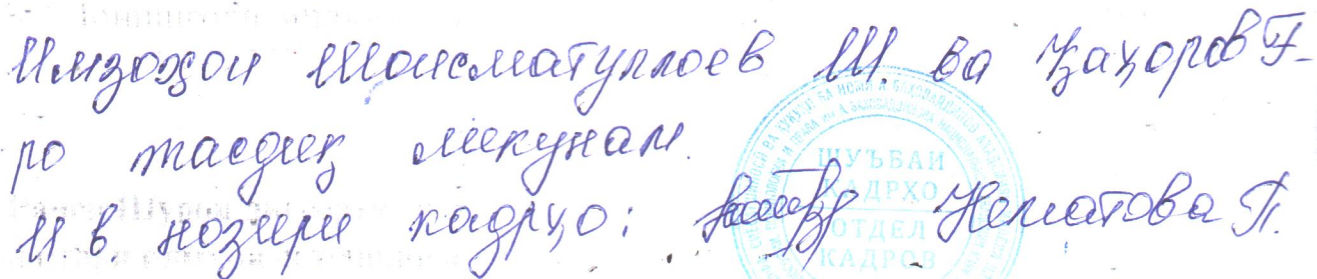 Имзоҳои Шоисматуллоев Ш. ва Қаҳоров Ғ-
ро тасдиқ мекунам.
И в нозири кадрҳо: Неъматова П.
ШУЪБАИ
КАДРҲО
ОТДЕЛ
КАДРОВ